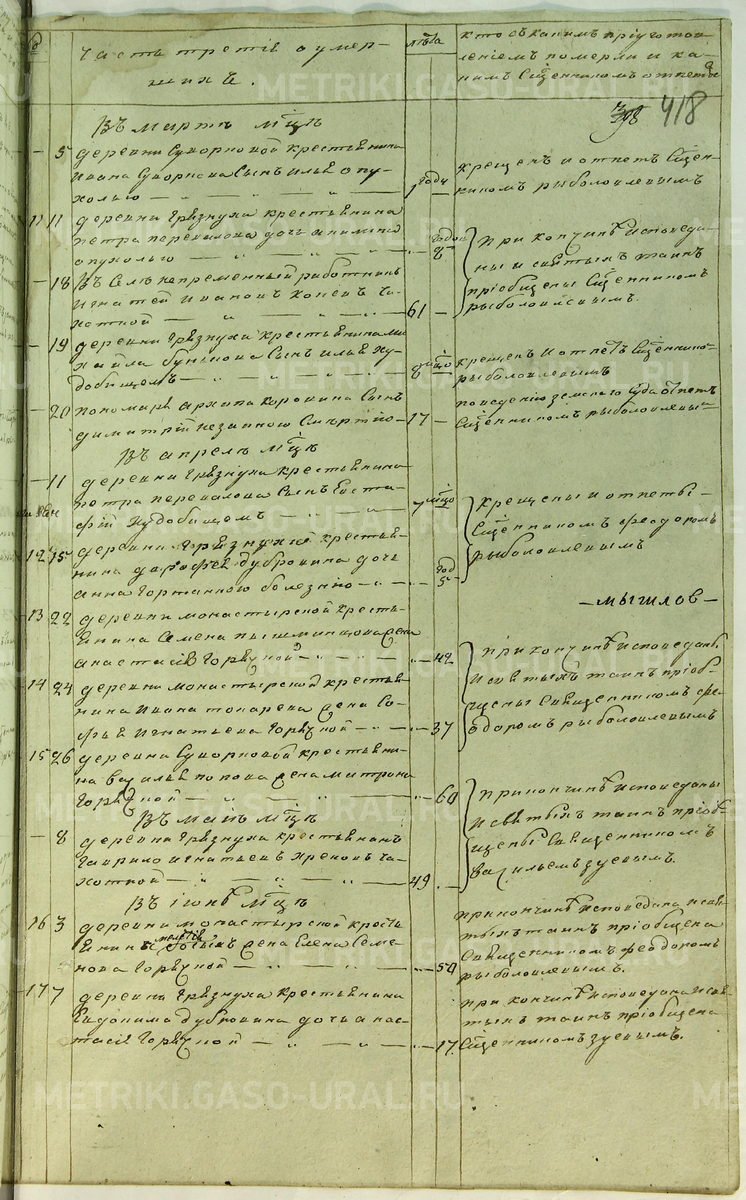 часть третія о умер-
шихъ.
лѣта
кто съ какимъ пріуготов-
леніемъ померли и ка-
кимъ Сщенникомъ отпеты
418
Въ мартѣ мцѣ
5 деревни Суворковой крестьянина
Ивана Суворкова Сынъ Илья опу-
холью
1 годъ
крещенъ и отпетъ Сщен-
никомъ рыболовлевымъ
11 11 деревни Грязнухи крестьянина
петра перевалова дочь акилина
опухолью
годов
При кончинѣ исповеда-
ны и святыхъ таинъ
пріобщены Сщенникомъ
рыболовлевымъ.
18 Въ Селѣ непременный работникъ
Игнатей Ивановъ Коневъ Ча-
хоткой
61
19 деревни Грязнухи крестьянина ми-
хайла Сынъ Илья ху-
добищемъ
крещенъ и отпетъ Сщенником
рыболовлевымъ
20 пономаря архипа Коровина Сынъ
димитрій незапною Смертію
17
по веденію земскаго Суда отпетъ
Сщенникомъ рыболовлевым
Въ апрелѣ мцѣ
11 деревни Грязнухи крестьянина
петра перевалова Сынъ Евста-
фій худобищемъ
7
крещены и отпеты
Сщенникомъ феодоромъ
рыболовлевымъ
12 15 деревни Грязнухи крестья-
нина дорофея дубровина дочь
анна Гортанною болезнію
год
5
мышлов
13 22 деревни монастырской кресть-
янина Семена пышминцова жена
анастасія Горячкой
42
При кончинѣ исповеданы
и святыхъ таинъ пріоб-
щены Священникомъ фе-
одоромъ рыболовлевымъ
14 24 деревни монастырской крестья-
нина Ивана токарева жена Со-
фья Игнатьева Горячкой
37
15 26 деревни Суворковой крестьяни-
на Василья попова жена матрона
Горячкой
60
При кончинѣ исповеданы
и святыхъ таинъ пріоб-
щены Священникомъ
Васильемъ зуевымъ.
Въ маѣ мцѣ
8 деревни Грязнухи крестьянинъ
Гаврило Игнатьевъ Хреновъ Ча-
хоткой
49
Въ іюнѣ мцѣ
16 3 деревни монастырской кресть
янина жена Елена Семе-
нова Горячкой
50
при кончинѣ исповедана и свя-
тыхъ таинъ пріобщена
Священникомъ феодоромъ
рыболовлевымъ.
17 7 деревни Грязнухи крестьянина
Евдокима дубровина дочь анас-
тасія Горячкой
17.
при кончинѣ исповедана и свя-
тыхъ таинъ пріобщена
Сщенникомъ зуевымъ.
METRIKI.GASO-URAL.RU